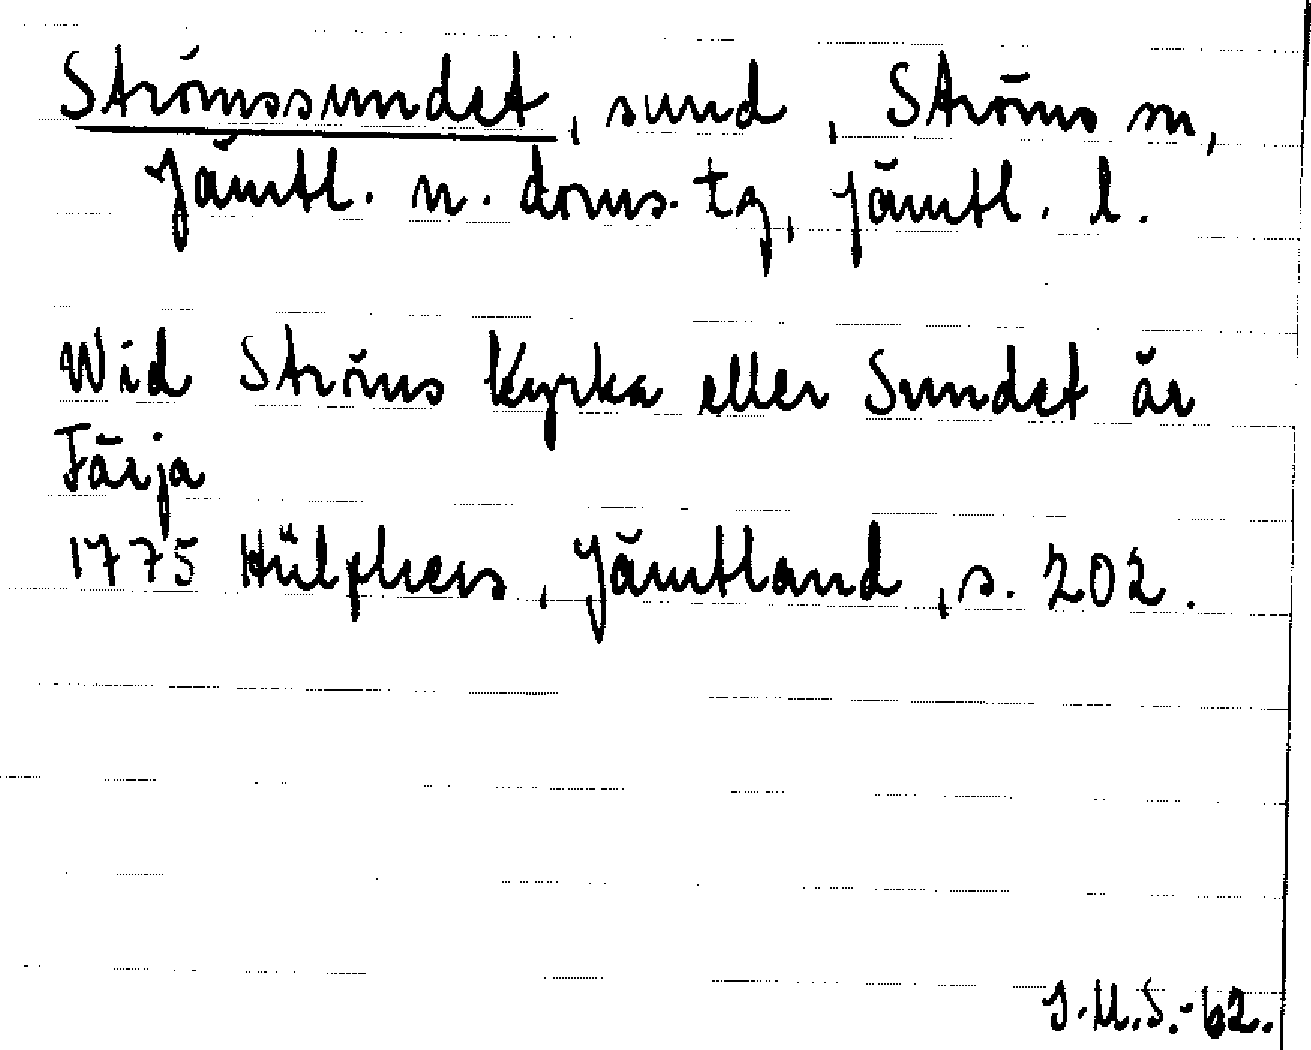 Strömssundet, sund, Ströms sn,
Jämtl. n. doms. tg, Jämtl. l.
Wid Ströms Kyrka eller Sundet är
Färja
1775 Hülphers, Jämtland, s. 202.
J.M.S.-62.